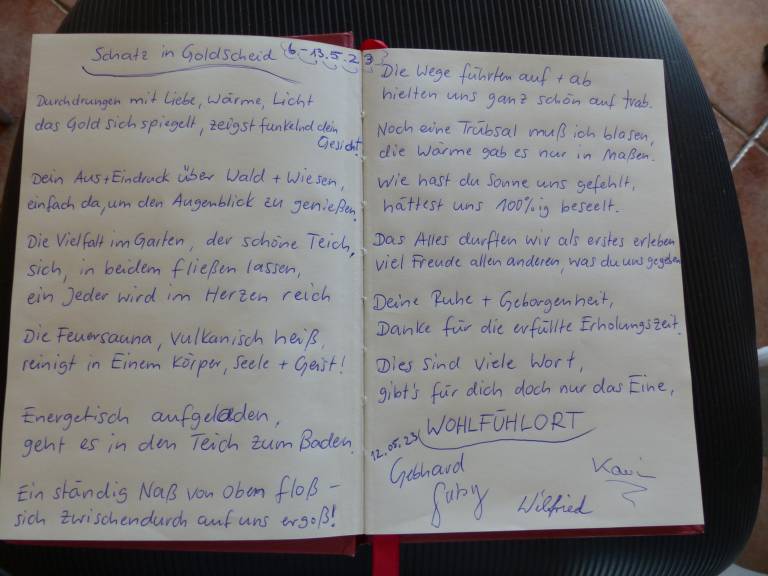 Schatz in Goldscheid (6.-13.5.23)
Durchdrungen mit Liebe, Wärme, Licht
das Gold sich spiegelt, zeigst funkelnd dein
Gesicht.
Dein Aus+Eindruck über Wald + Wiesen,
einfach da, um den Augenblick zu genießen.
Die Vielfalt im Garten, der schöne Teich,
sich, in beidem fließen lassen,
ein Jeder wird im Herzen reich
Die Feuersauna, vulkanisch heiß,
reinigt in Einem Körper, Seele + Geist!
Energetisch aufgeladen,
geht es in den Teich zum Baden.
Ein ständig Naß von oben floß -
sich zwischendurch auf uns ergoß!
Die Wege führten auf + ab
hielten uns ganz schön auf trab.
Noch eine Trübsal muß ich blasen,
die Wärme gab es nur in Maßen.
Wie hast du Sonne uns gefehlt,
hättest uns 100%ig beseelt.
Das Alles durften wir als erstes erleben
viel Freude allen anderen, was du uns gegeben
Deine Ruhe + Geborgenheit,
Danke für die erfüllte Erholungszeit.
Dies sind viele Wort,
gibt's für dich doch nur das Eine,
WOHLFÜHLORT
12.05.23
Gebhard
Gaby
Wilfried